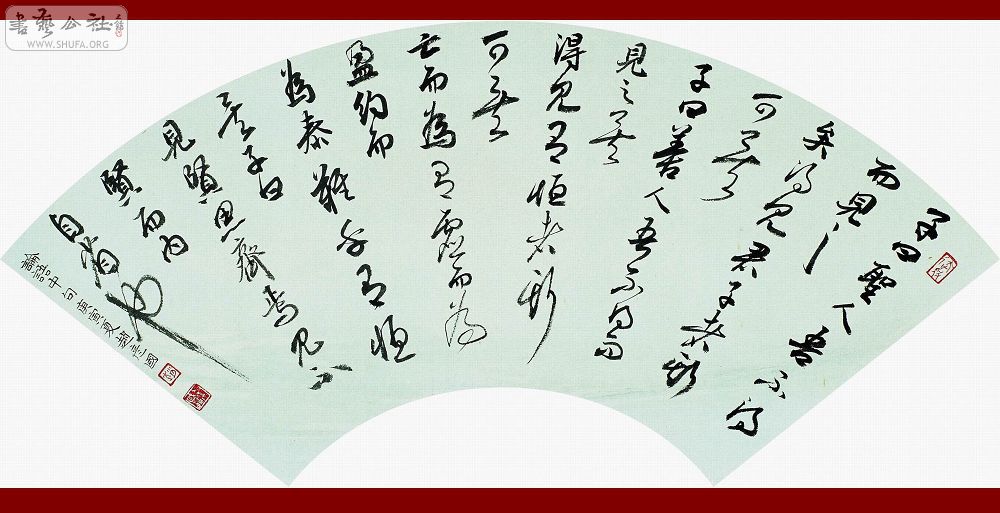 書藝公社
WWW.SHUFA.ORG
子曰聖人吾不得
而見之
矣得見君子者斯
可矣
子曰善人吾不得而
見之矣
得見有恒者斯
可矣
亡而為有虛而為
盈約而
為泰難乎有恒
矣子曰
見賢思齊焉見不
賢而內
自省也
論語中句庚寅夏趙國